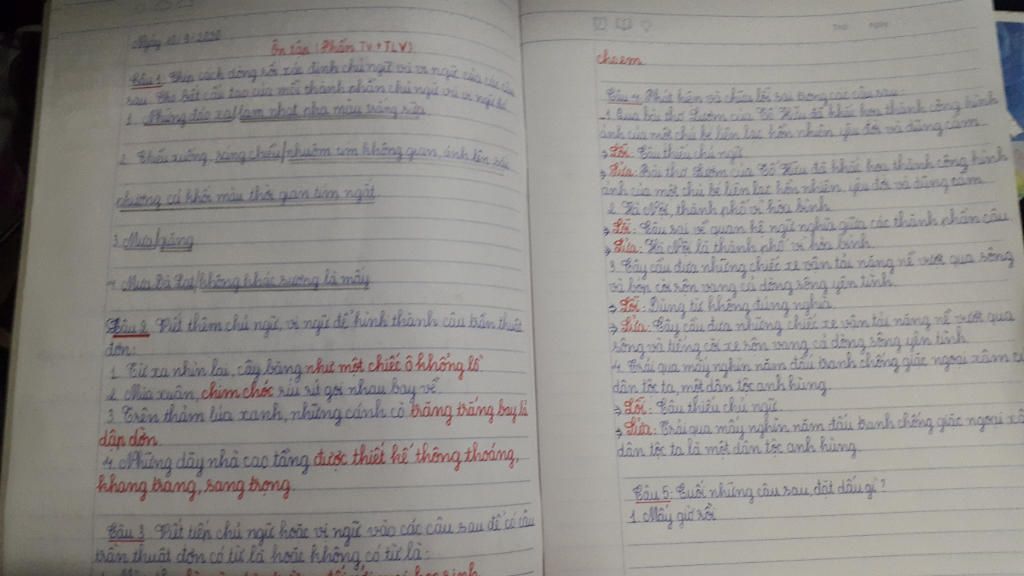 Ngày 10/9/2020
Ôn tập (Phần TV + TLV)
Câu 1. cách dòng rồi xác định chủ ngữ và vị ngữ của các câu
sau. Cho biết cấu tạo của mỗi thành phần chủ ngữ và vị ngữ
1. Những đảo xa/làm nhạt pha màu trắng sữa
2. Chiều xuống, sáng chiều/nhuôm tím không gian, ánh lên
phương cả khối màu thời gian tím ngát
3. Mưa/giăng
4. Mưa Đà Lạt/không khác sương là mấy
Câu 2. Viết thêm chủ ngữ, vị ngữ để hình thành câu trần thuật
đơn:
1. Từ xa nhìn lại, cây bàng như một chiếc ô khổng lồ
2. Mùa xuân, chim chóc ríu rít gọi nhau bay về
3. Trên thảm lúa xanh, những cánh cò trăng trắng bay
dập dờn.
4. Những dãy nhà cao tầng được thiết kế thông thoáng,
khang trang, sang trọng.
Câu 3. Viết tiếp chủ ngữ hoặc vị ngữ vào các câu sau để có câu
trần thuật đơn có từ là hoặc không có từ là:
cho em
Câu 4. Phát hiện và chữa lỗi sai trong các câu sau:
1. Qua bài thơ Lượm của Tố Hữu đã khắc họa thành công hình
ảnh của một chú bé liên lạc hồn nhiên yêu đời và dũng cảm
→ Lỗi: Câu thiếu chủ ngữ
→ Sửa: Bài thơ Lượm của Tố Hữu đã khắc họa thành công hình
ảnh của một chú bé liên lạc hồn nhiên, yêu đời và dũng cảm
2. Hà Nội, thành phố vì hòa bình.
→ Lỗi: Câu sai về quan hệ ngữ nghĩa giữa các thành phần câu
→ Sửa: Hà Nội là thành phố vì hòa bình.
3. Cây cầu đưa những chiếc xe vận tải nặng nề vượt qua sông
và bóp còi rộn vang cả dòng sông yên tĩnh.
→ Lỗi: Dùng từ không đúng nghĩa
→ Sửa: Cây cầu đưa những chiếc xe vận tải nặng nề vượt qua
sông và tiếng còi xe rộn vang cả dòng sông yên tĩnh
4. Trải qua mấy nghìn năm đấu tranh chống giặc ngoại xâm của
dân tộc ta, một dân tộc anh hùng.
→ Lỗi: Câu thiếu chủ ngữ
→ Sửa: Trải qua mấy nghìn năm đấu tranh chống giặc ngoại
dân tộc ta là một dân tộc anh hùng
Câu 5: Cuối những câu sau, đặt dấu gì?
1. Mấy giờ rồi